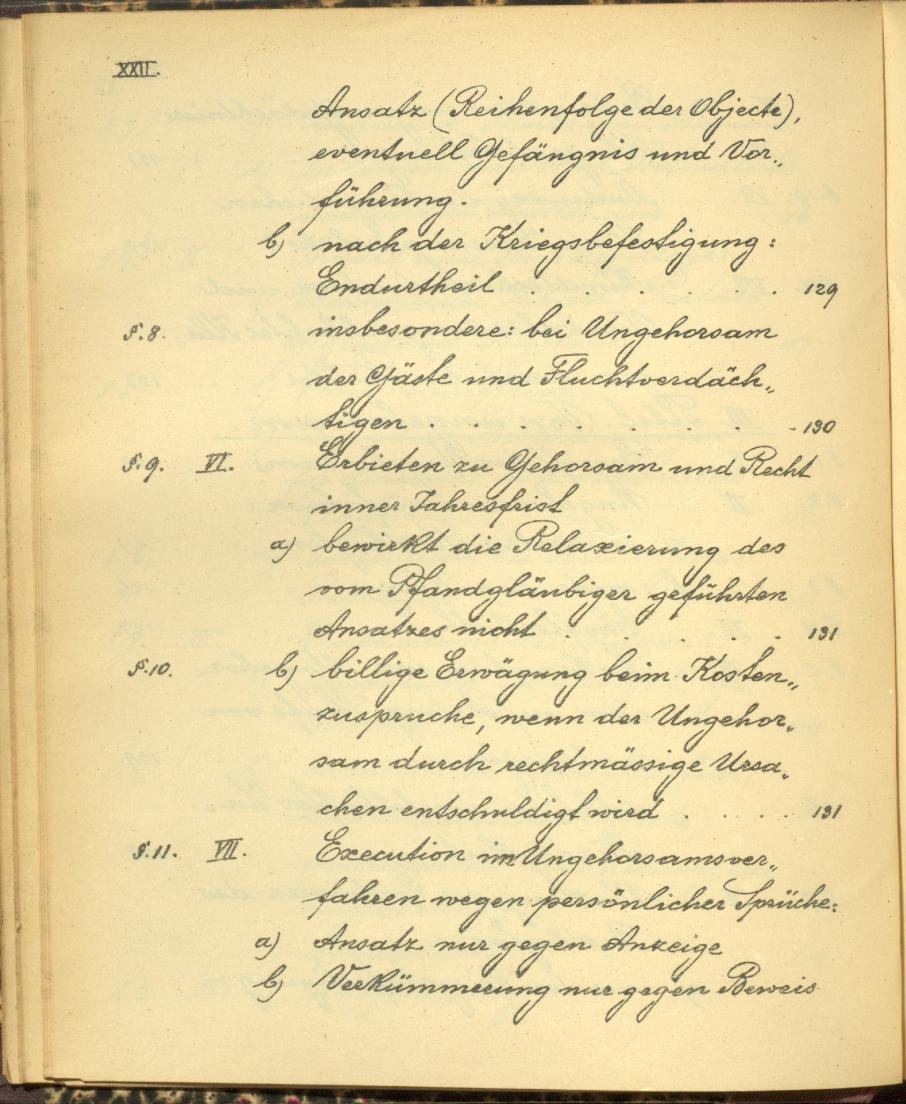 XXII.
Ansatz (Reihenfolge der Objecte),
eventuell Gefängnis und Vor„
führung.
b) nach der Kriegsbefestigung:
Endurtheil . . . . . . 129
§.8. insbesondere: bei Ungehorsam
der Gäste und Fluchtverdäch„
tigen . . . . . . . . 130
§.9. VI. Erbieten zu Gehorsam und Recht
inner Jahresfrist
a) bewirkt die Relaxierung des
vom Pfandgläubiger geführten
Ansatzes nicht . . . . . . 131
§.10. b) billige Erwägung beim Kosten„
zuspruche, wenn der Ungehor„
sam durch rechtmässige Ursa„
chen entschuldigt wird . . . . 131
§.11. VII. Execution im Ungehorsamsver„
fahren wegen persönlicher Sprüche:
a) Ansatz nur gegen Anzeige
b) Verkümmerung nur gegen Beweis